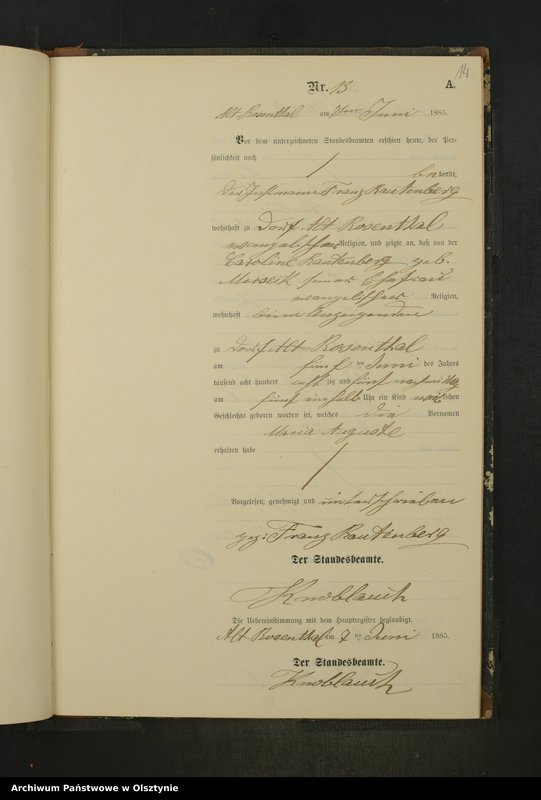 14
Nr. 13 A.
Alt Rosenthal am 7ten Juni 1885.
Vor dem unterzeichneten Standesbeamten erschien heute, der Per-
sönlichkeit nach / bekannt,
der Instmann Franz Rautenberg
wohnhaft zu Dorf Alt Rosenthal
evangelischer Religion, und zeigte an, daß von der
Caroline Rautenberg geb.
seiner Ehefrau
evangelischer Religion,
wohnhaft beim Anzeigenden
zu Dorf Alt Rosenthal
am fünf ten Juni des Jahres
tausend acht hundert acht zig und fünf nachmittag
um fünf einhalb Uhr ein Kind weiblichen
Geschlechts geboren worden sei, welches die Vornamen
Maria Auguste
erhalten habe
/
Vorgelesen, genehmigt und unterschrieben
gez: Franz Rautenberg
Der Standesbeamte.
Knoblauch
Die Uebereinstimmung mit dem Hauptregister beglaubigt.
Alt Rosenthal am 7 ten Juni 1885.
Der Standesbeamte.
Knoblauch
Archiwum Państwowe w Olsztynie